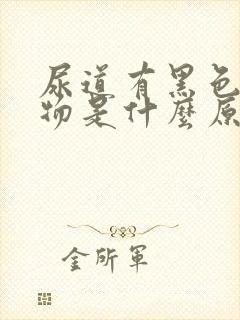 尿道有黑色
物是什麼原
金所軍